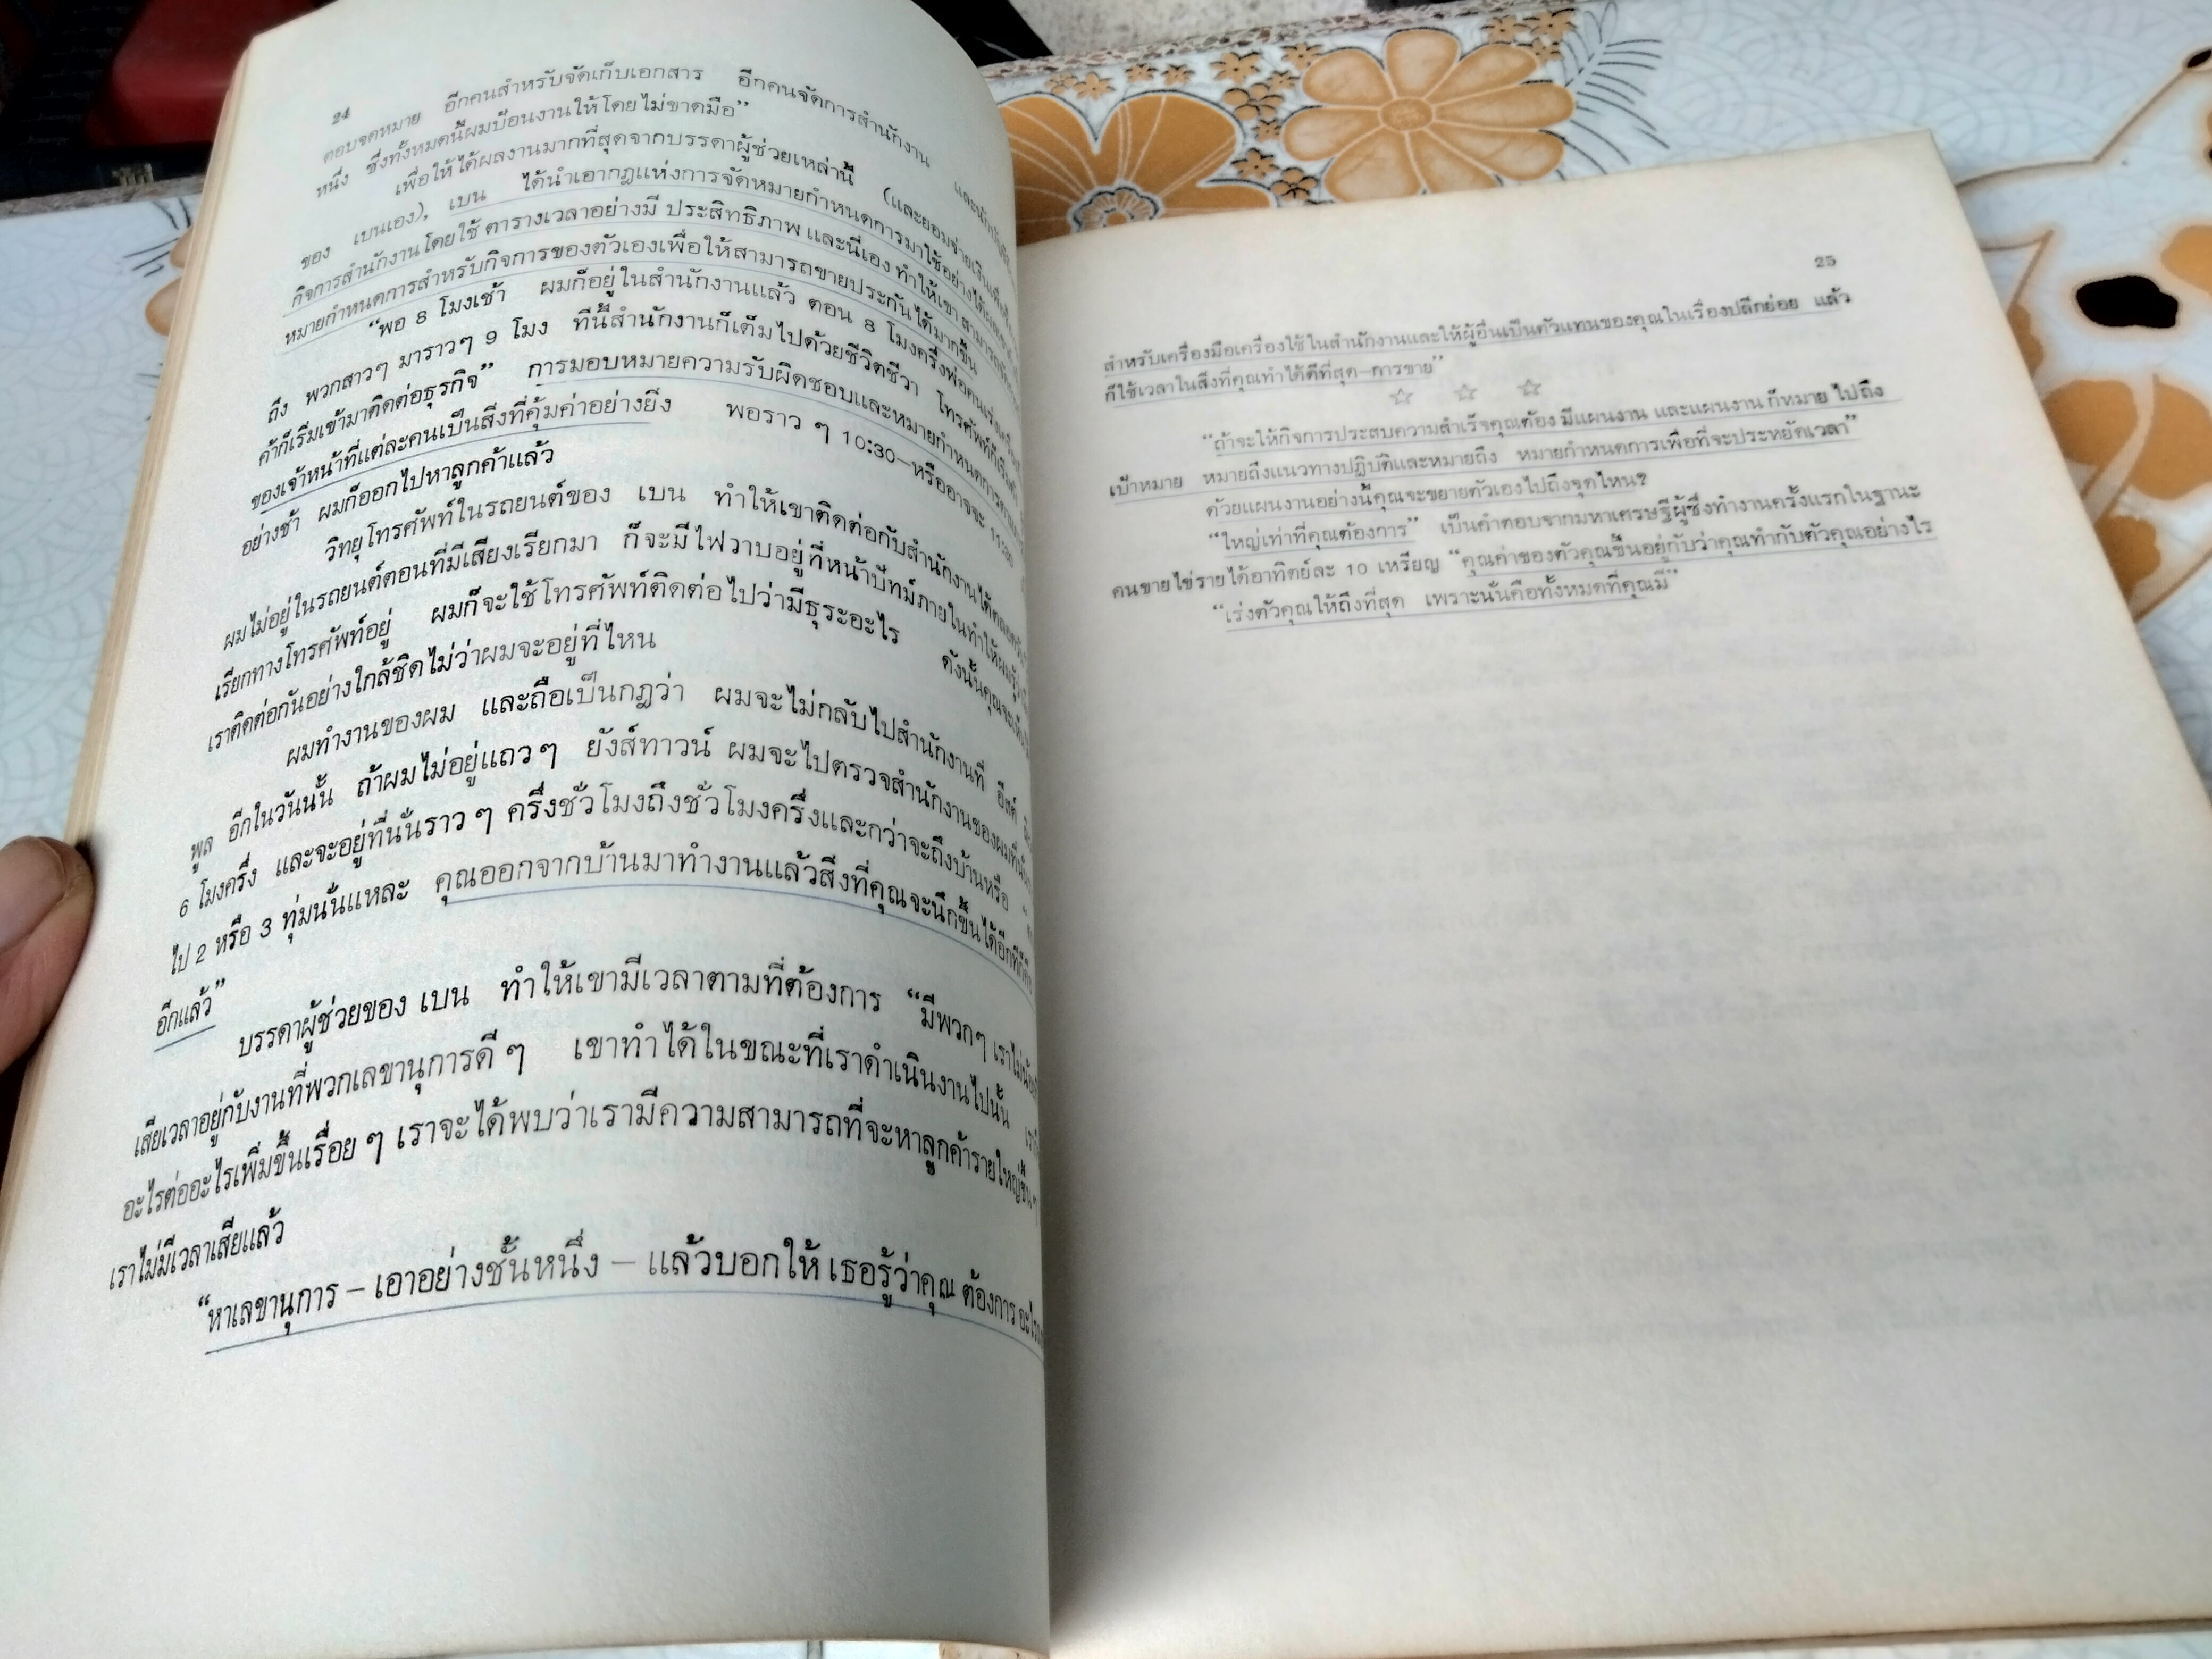 24
ตอบจดหมาย อีกคนสำหรับจัดเก็บเอกสาร อีกคนจัดการสำนักงาน
หนึ่ง ซึ่งทั้งหมดนี้ผมป้อนงานให้โดยไม่ขาดมือ”
เพื่อให้ได้ผลงานมากที่สุดจากบรรดาผู้ช่วยเหล่านี้ (และยอมจ่ายเงิน
ของ เบนเอง), เบน ได้นำเอากฎแห่งการจัดหมายกำหนดการมาใช้อย่างได้ผล
กิจการสำนักงานโดยใช้ ตารางเวลาอย่างมี ประสิทธิภาพ และนี่เอง ทำให้เขา สามารถ
หมายกำหนดการสำหรับกิจการของตัวเองเพื่อให้สามารถขายประกันได้มากขึ้น
“พอ 8 โมงเช้า ผมก็อยู่ในสำนักงานแล้ว ตอน 8 โมงครึ่งพ่อคนเร่ง
ถึง พวกสาวๆ มาราวๆ 9 โมง ทีนี้สำนักงานก็เต็มไปด้วยชีวิตชีวา โทรศัพท์ก็เริ่ม
ค้าก็เริ่มเข้ามาติดต่อธุรกิจ” การมอบหมายความรับผิดชอบและหมายกำหนดการ
ของเจ้าหน้าที่แต่ละคนเป็นสิ่งที่คุ้มค่าอย่างยิ่ง พอราว ๆ 10:30–หรืออาจจะ 11:30
อย่างช้า ผมก็ออกไปหาลูกค้าแล้ว
วิทยุโทรศัพท์ในรถยนต์ของ เบน ทำให้เขาติดต่อกับสำนักงานได้ตลอด
ผมไม่อยู่ในรถยนต์ตอนที่มีเสียงเรียกมา ก็จะมีไฟวาบอยู่ที่หน้าปัทม์ภายในทำให้ผมรู้
เรียกทางโทรศัพท์อยู่ ผมก็จะใช้โทรศัพท์ติดต่อไปว่ามีธุระอะไร ดังนั้นคุณจะเห็น
เราติดต่อกันอย่างใกล้ชิดไม่ว่าผมจะอยู่ที่ไหน
ผมทำงานของผม และถือเป็นกฎว่า ผมจะไม่กลับไปสำนักงานที่ อีสต์
พูล อีกในวันนั้น ถ้าผมไม่อยู่แถวๆ ยังส์ทาวน์ ผมจะไปตรวจสำนักงานของผมที่นั่น
6 โมงครึ่ง และจะอยู่ที่นั่นราว ๆ ครึ่งชั่วโมงถึงชั่วโมงครึ่งและกว่าจะถึงบ้านหรือ
ไป 2 หรือ 3 ทุ่มนั่นแหละ คุณออกจากบ้านมาทำงานแล้วสิ่งที่คุณจะนึกขึ้นได้อีกทีก็คือ
อีกแล้ว”
บรรดาผู้ช่วยของ เบน ทำให้เขามีเวลาตามที่ต้องการ “มีพวกๆ เราไม่น้อย
เสียเวลาอยู่กับงานที่พวกเลขานุการดี ๆ เขาทำได้ในขณะที่เราดำเนินงานไปนั้น
อะไรต่ออะไรเพิ่มขึ้นเรื่อย ๆ เราจะได้พบว่าเรามีความสามารถที่จะหาลูกค้ารายใหญ่ขึ้น ๆ
เราไม่มีเวลาเสียแล้ว
“หาเลขานุการ – เอาอย่างชั้นหนึ่ง – แล้วบอกให้ เธอรู้ว่าคุณ ต้องการ
25
สำหรับเครื่องมือเครื่องใช้ในสำนักงานและให้ผู้อื่นเป็นตัวแทนของคุณในเรื่องปลีกย่อย แล้ว
ก็ใช้เวลาในสิ่งที่คุณทำได้ดีที่สุด–การขาย”
☆ ☆ ☆
“ถ้าจะให้กิจการประสบความสำเร็จคุณต้อง มีแผนงาน และแผนงาน ก็หมาย ไปถึง
เป้าหมาย หมายถึงแนวทางปฏิบัติและหมายถึง หมายกำหนดการเพื่อที่จะประหยัดเวลา”
ด้วยแผนงานอย่างนี้คุณจะขยายตัวเองไปถึงจุดไหน?
“ใหญ่เท่าที่คุณต้องการ” เป็นคำตอบจากมหาเศรษฐีผู้ซึ่งทำงานครั้งแรกในฐานะ
คนขายไข่รายได้อาทิตย์ละ 10 เหรียญ “คุณค่าของตัวคุณขึ้นอยู่กับว่าคุณทำกับตัวคุณอย่างไร
“เร่งตัวคุณให้ถึงที่สุด เพราะนั่นคือทั้งหมดที่คุณมี”